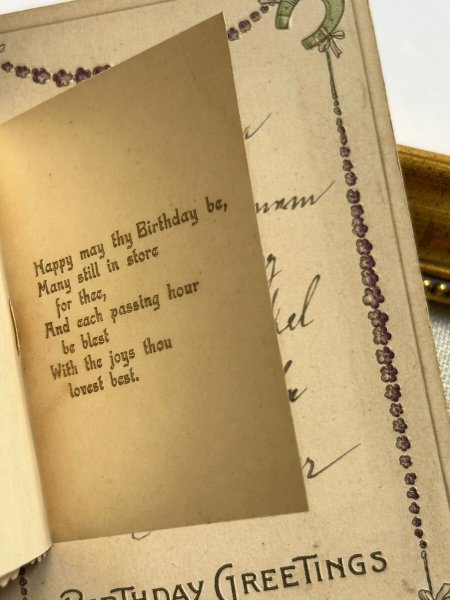 Happy may thy Birthday be,
Many still in store
for thee,
And each passing hour
be blest
With the joys thou
lovest best.
BIRTHDAY GREETINGS